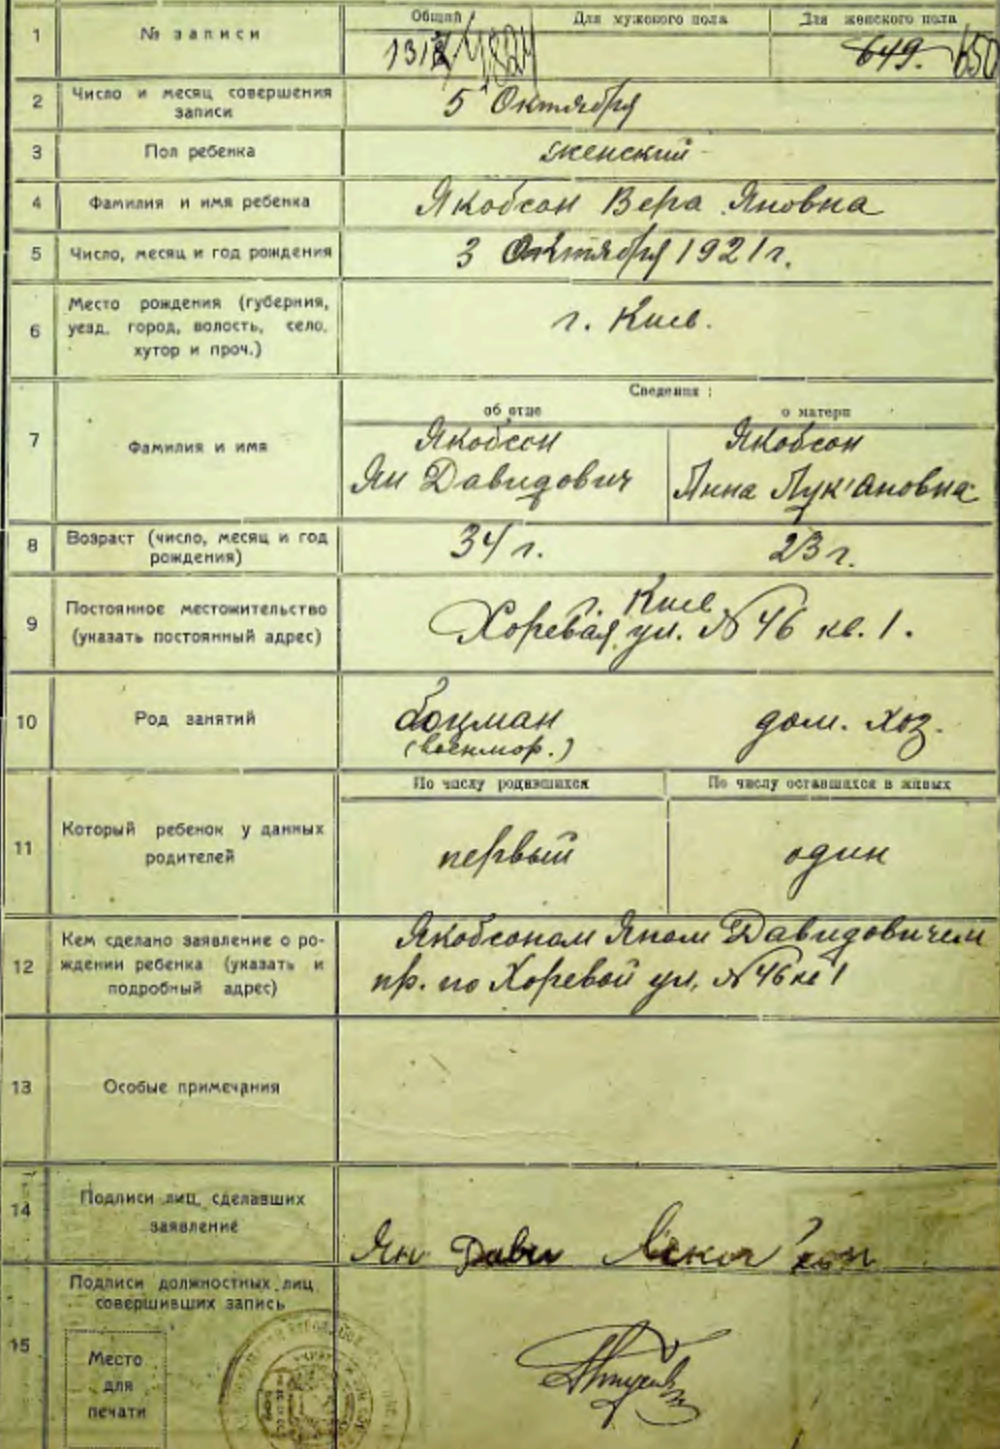 1 № записи
Общий Для мужского пола Для женского пола
649. 650
2 Число и месяц совершения
записи
5 Октября
3 Пол ребенка женский
4 Фамилия и имя ребенка Якобсон Вера Яновна
5 Число, месяц и год рождения 3 Октября 1921 г.
6 Место рождения (губерния,
уезд, город, волость, село,
хутор и проч.)
г. Киев.
Сведения:
об отце о матери
7 Фамилия и имя
Якобсон Якобсон
Ян Давидович Анна Лук'ановна
8 Возраст (число, месяц и год
рождения)
34 г. 23 г.
9 Постоянное местожительство
(указать постоянный адрес)
г. Киев
Хоревая ул. № 46 кв. 1.
10 Род занятий
боцман дом. хоз.
(военмор.)
По числу родившихся По числу оставшихся в живых
11 Который ребенок у данных
родителей
первый один
12 Кем сделано заявление о ро-
ждении ребенка (указать и
подробный адрес)
Якобсоном Яном Давидовичем
пр. по Хоревой ул. № 46 кв 1
13 Особые примечания
14 Подписи лиц, сделавших
заявление
Ян Дави
15 Подписи должностных лиц
совершивших запись
Место
для
печати